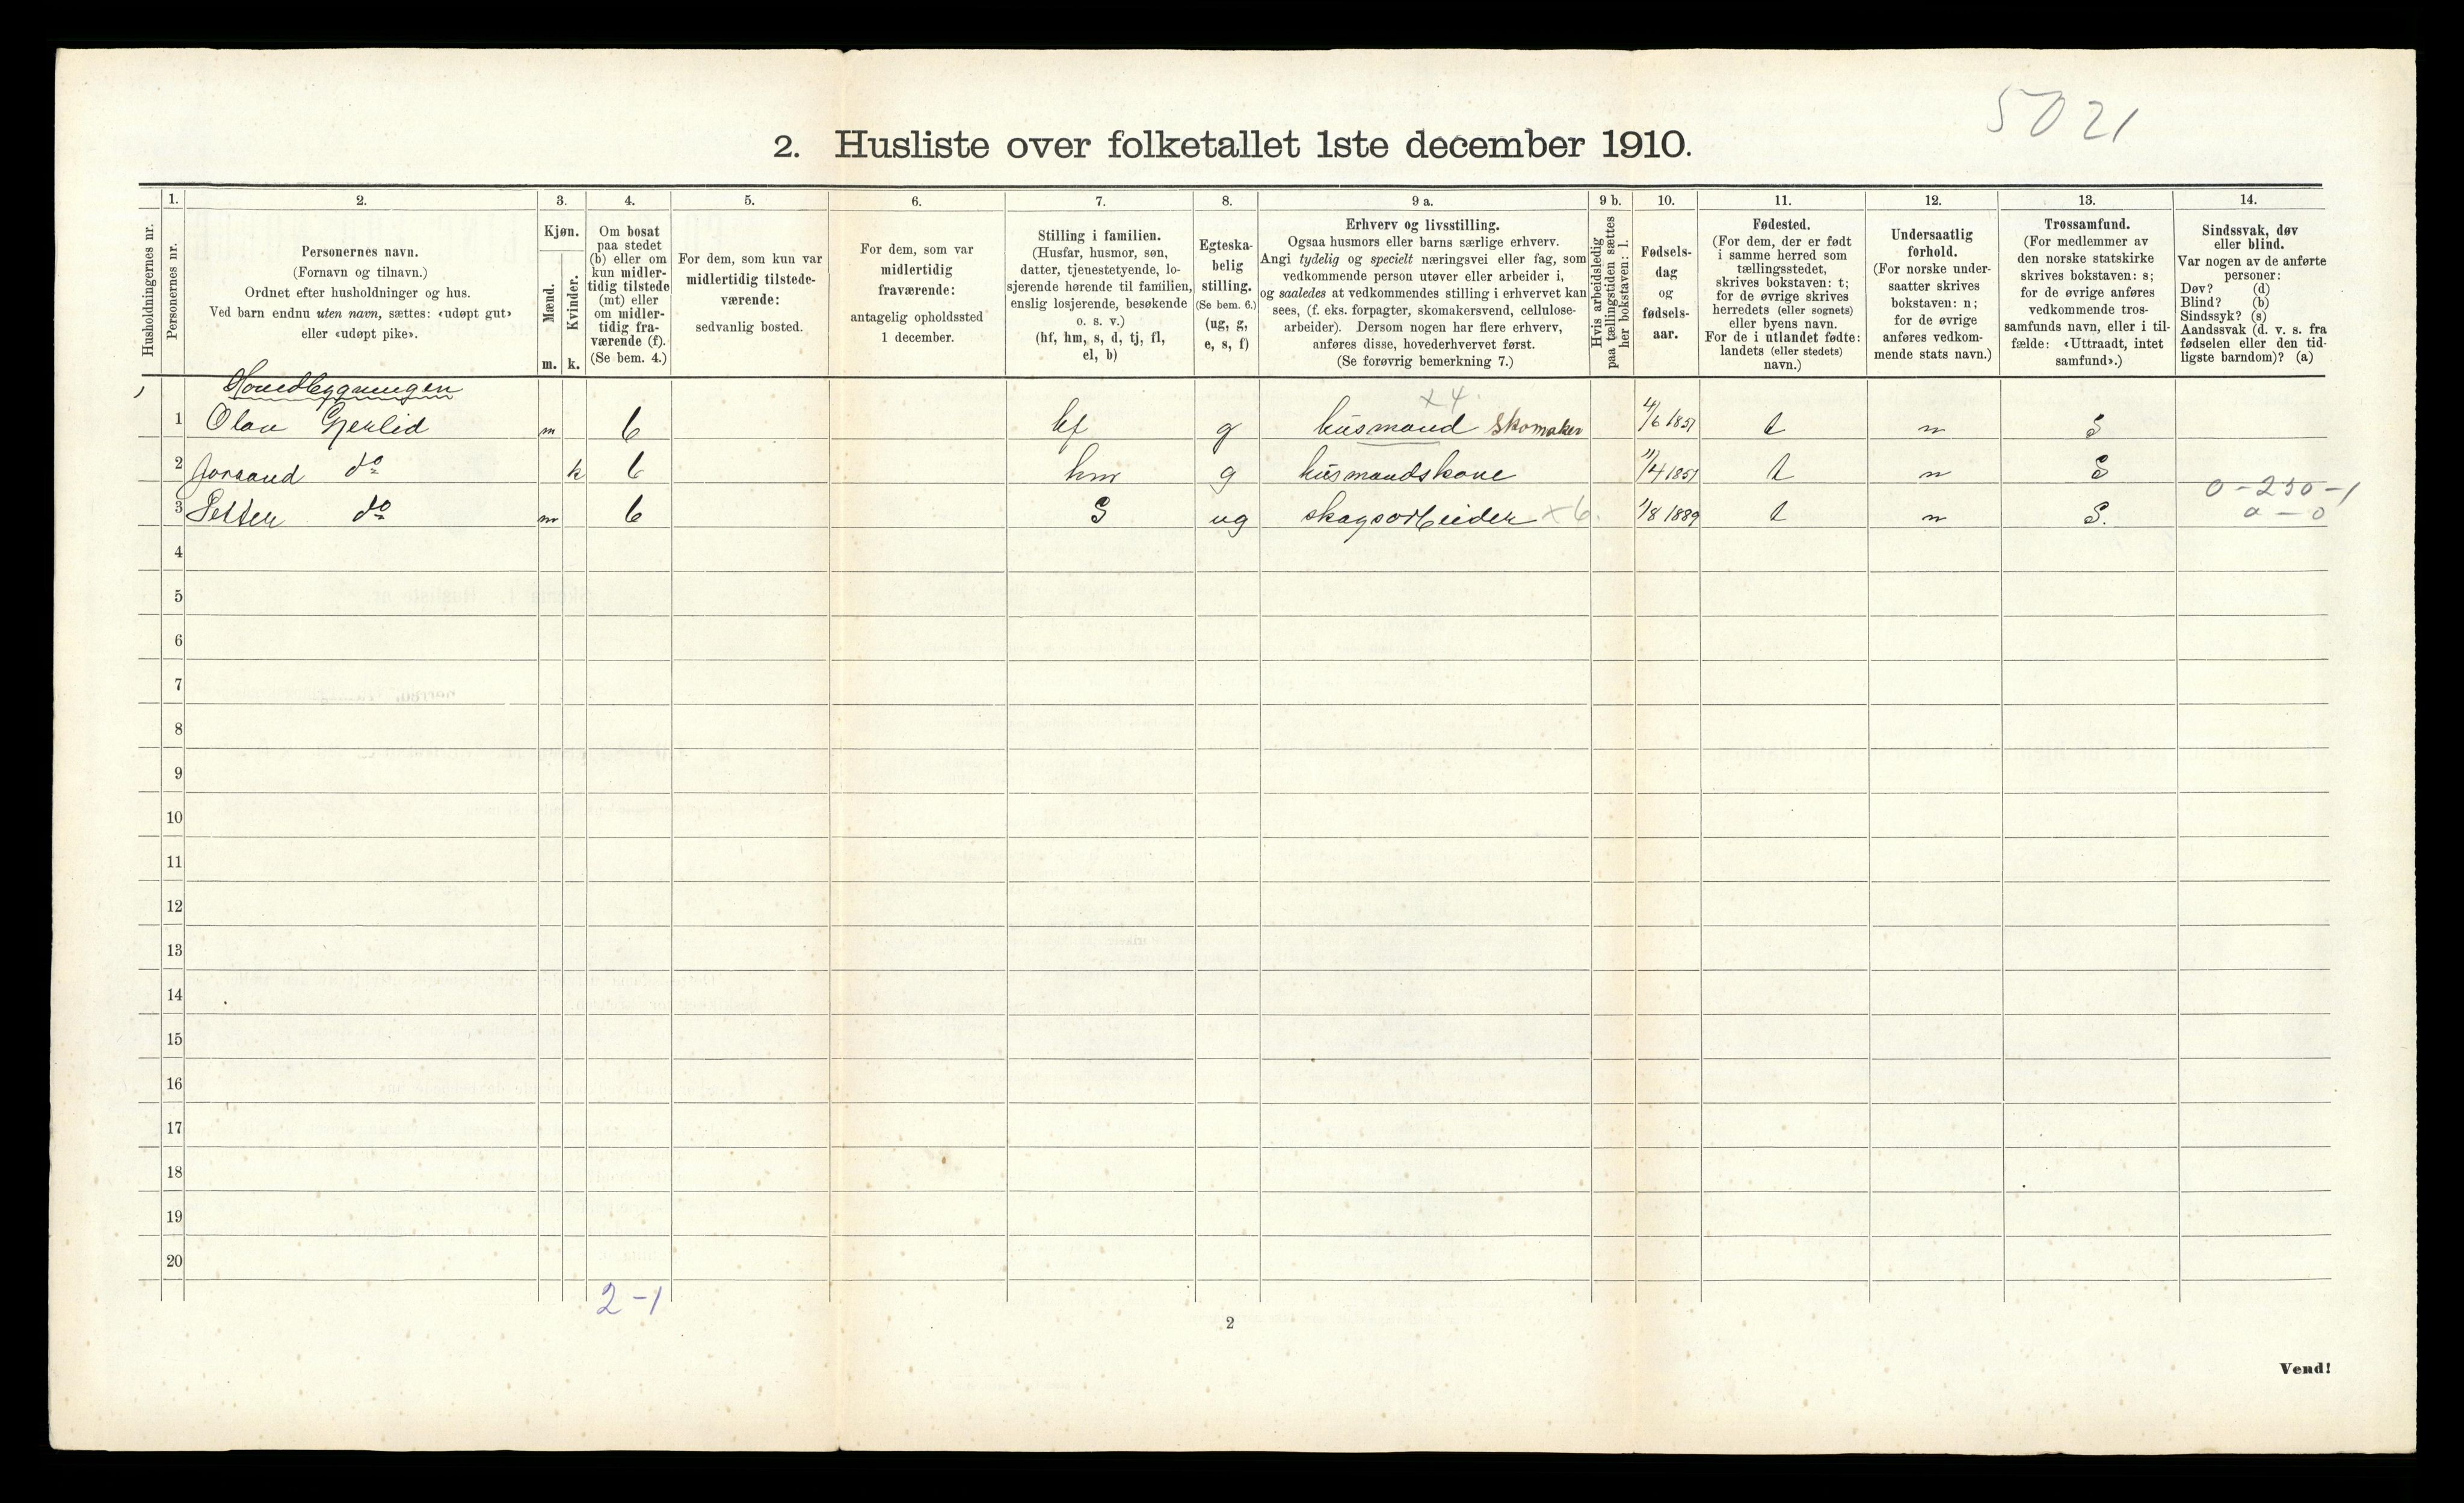 5021
2. Husliste over folketallet 1ste december 1910.
Husholdningernes nr.
1.
Personernes nr.
2.
Personernes navn.
(Fornavn og tilnavn.)
Ordnet efter husholdninger og hus.
Ved barn endnu uten navn, sættes: «udøpt gut»
eller «udøpt pike».
3.
Kjøn.
Mænd.
Kvinder.
m. k.
4.
Om bosat
paa stedet
(b) eller om
kun midler-
tidig tilstede
(mt) eller
om midler-
tidig fra-
værende (f).
(Se bem. 4.)
5.
For dem, som kun var
midlertidig tilstede-
værende:
sedvanlig bosted.
6.
For dem, som var
midlertidig
fraværende:
antagelig opholdssted
1 december.
7.
Stilling i familien.
(Husfar, husmor, søn,
datter, tjenestetyende, lo-
sjerende hørende til familien,
enslig losjerende, besøkende
o. s. v.)
(hf, hm, s, d, tj, fl,
el, b)
8.
Egteska-
belig
stilling.
(Se bem. 6.)
(ug, g,
e, s, f)
9 a.
Erhverv og livsstilling.
Ogsaa husmors eller barns særlige erhverv.
Angi tydelig og specielt næringsvei eller fag, som
vedkommende person utøver eller arbeider i,
og saaledes at vedkommendes stilling i erhvervet kan
sees, (f. eks. forpagter, skomakersvend, cellulose-
arbeider). Dersom nogen har flere erhverv,
anføres disse, hovederhvervet først.
(Se forøvrig bemerkning 7.)
9 b.
Hvis arbeidsledig
paa tællingstiden sættes
her bokstaven: l.
10.
Fødsels-
dag
og
fødsels-
aar.
11.
Fødested.
(For dem, der er født
i samme herred som
tællingsstedet,
skrives bokstaven: t;
for de øvrige skrives
herredets (eller sognets)
eller byens navn.
For de i utlandet fødte:
landets (eller stedets)
navn.)
12.
Undersaatlig
forhold.
(For norske under-
saatter skrives
bokstaven: n;
for de øvrige
anføres vedkom-
mende stats navn.)
13.
Trossamfund.
(For medlemmer av
den norske statskirke
skrives bokstaven: s;
for de øvrige anføres
vedkommende tros-
samfunds navn, eller i til-
fælde: «Uttraadt, intet
samfund».)
14.
Sindssvak, døv
eller blind.
Var nogen av de anførte
personer:
Døv? (d)
Blind? (b)
Sindssyk? (s)
Aandssvak (d. v. s. fra
fødselen eller den tid-
ligste barndom)? (a)
Hovedbygningen
x4
1 Olav m b hf g husmand Skomaker 4/6 1851 t n S
2 Jorand do k b hm g husmandskone 11/4 1851 t n S
0-250-1
3 Petter do m b S ug skogsarbeider x6. 1/8 1889 t n S. a - 0
4
5
6
7
8
9
10
11
12
13
14
15
16
17
18
19
20
2-1
2
Vend!